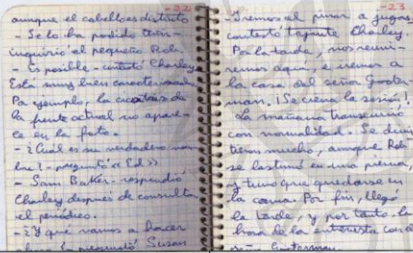 -22
aunque el cabello es distinto
- Se lo ha podido teñir -
inquirió el pequeño Rob.
- Es posible - contestó Charley
Está muy bien caracterizado.
Por ejemplo, la cicatriz de
la frente actual no apare-
ce en la foto.
- ¿Cuál es su verdadero nom-
bre? - preguntó «Ed»
- Sam Baker - respondió
Charley después de consultar
el periódico.
- ¿Y qué vamos a hacer
preguntó Susan
-23
- Iremos al pinar a jugar
contestó tajante Charley.
Por la tarde, nos reuni-
remos aquí, e iremos a
la casa del señor
man. ¡Se cierra la sesión!
La mañana transcurrió
con normalidad. Se divir
tieron mucho, aunque Rob
se lastimó en una pierna,
y tuvo que quedarse en
la cama. Por fin, llegó
la tarde, y por tanto, la
hora de la entrevista con el